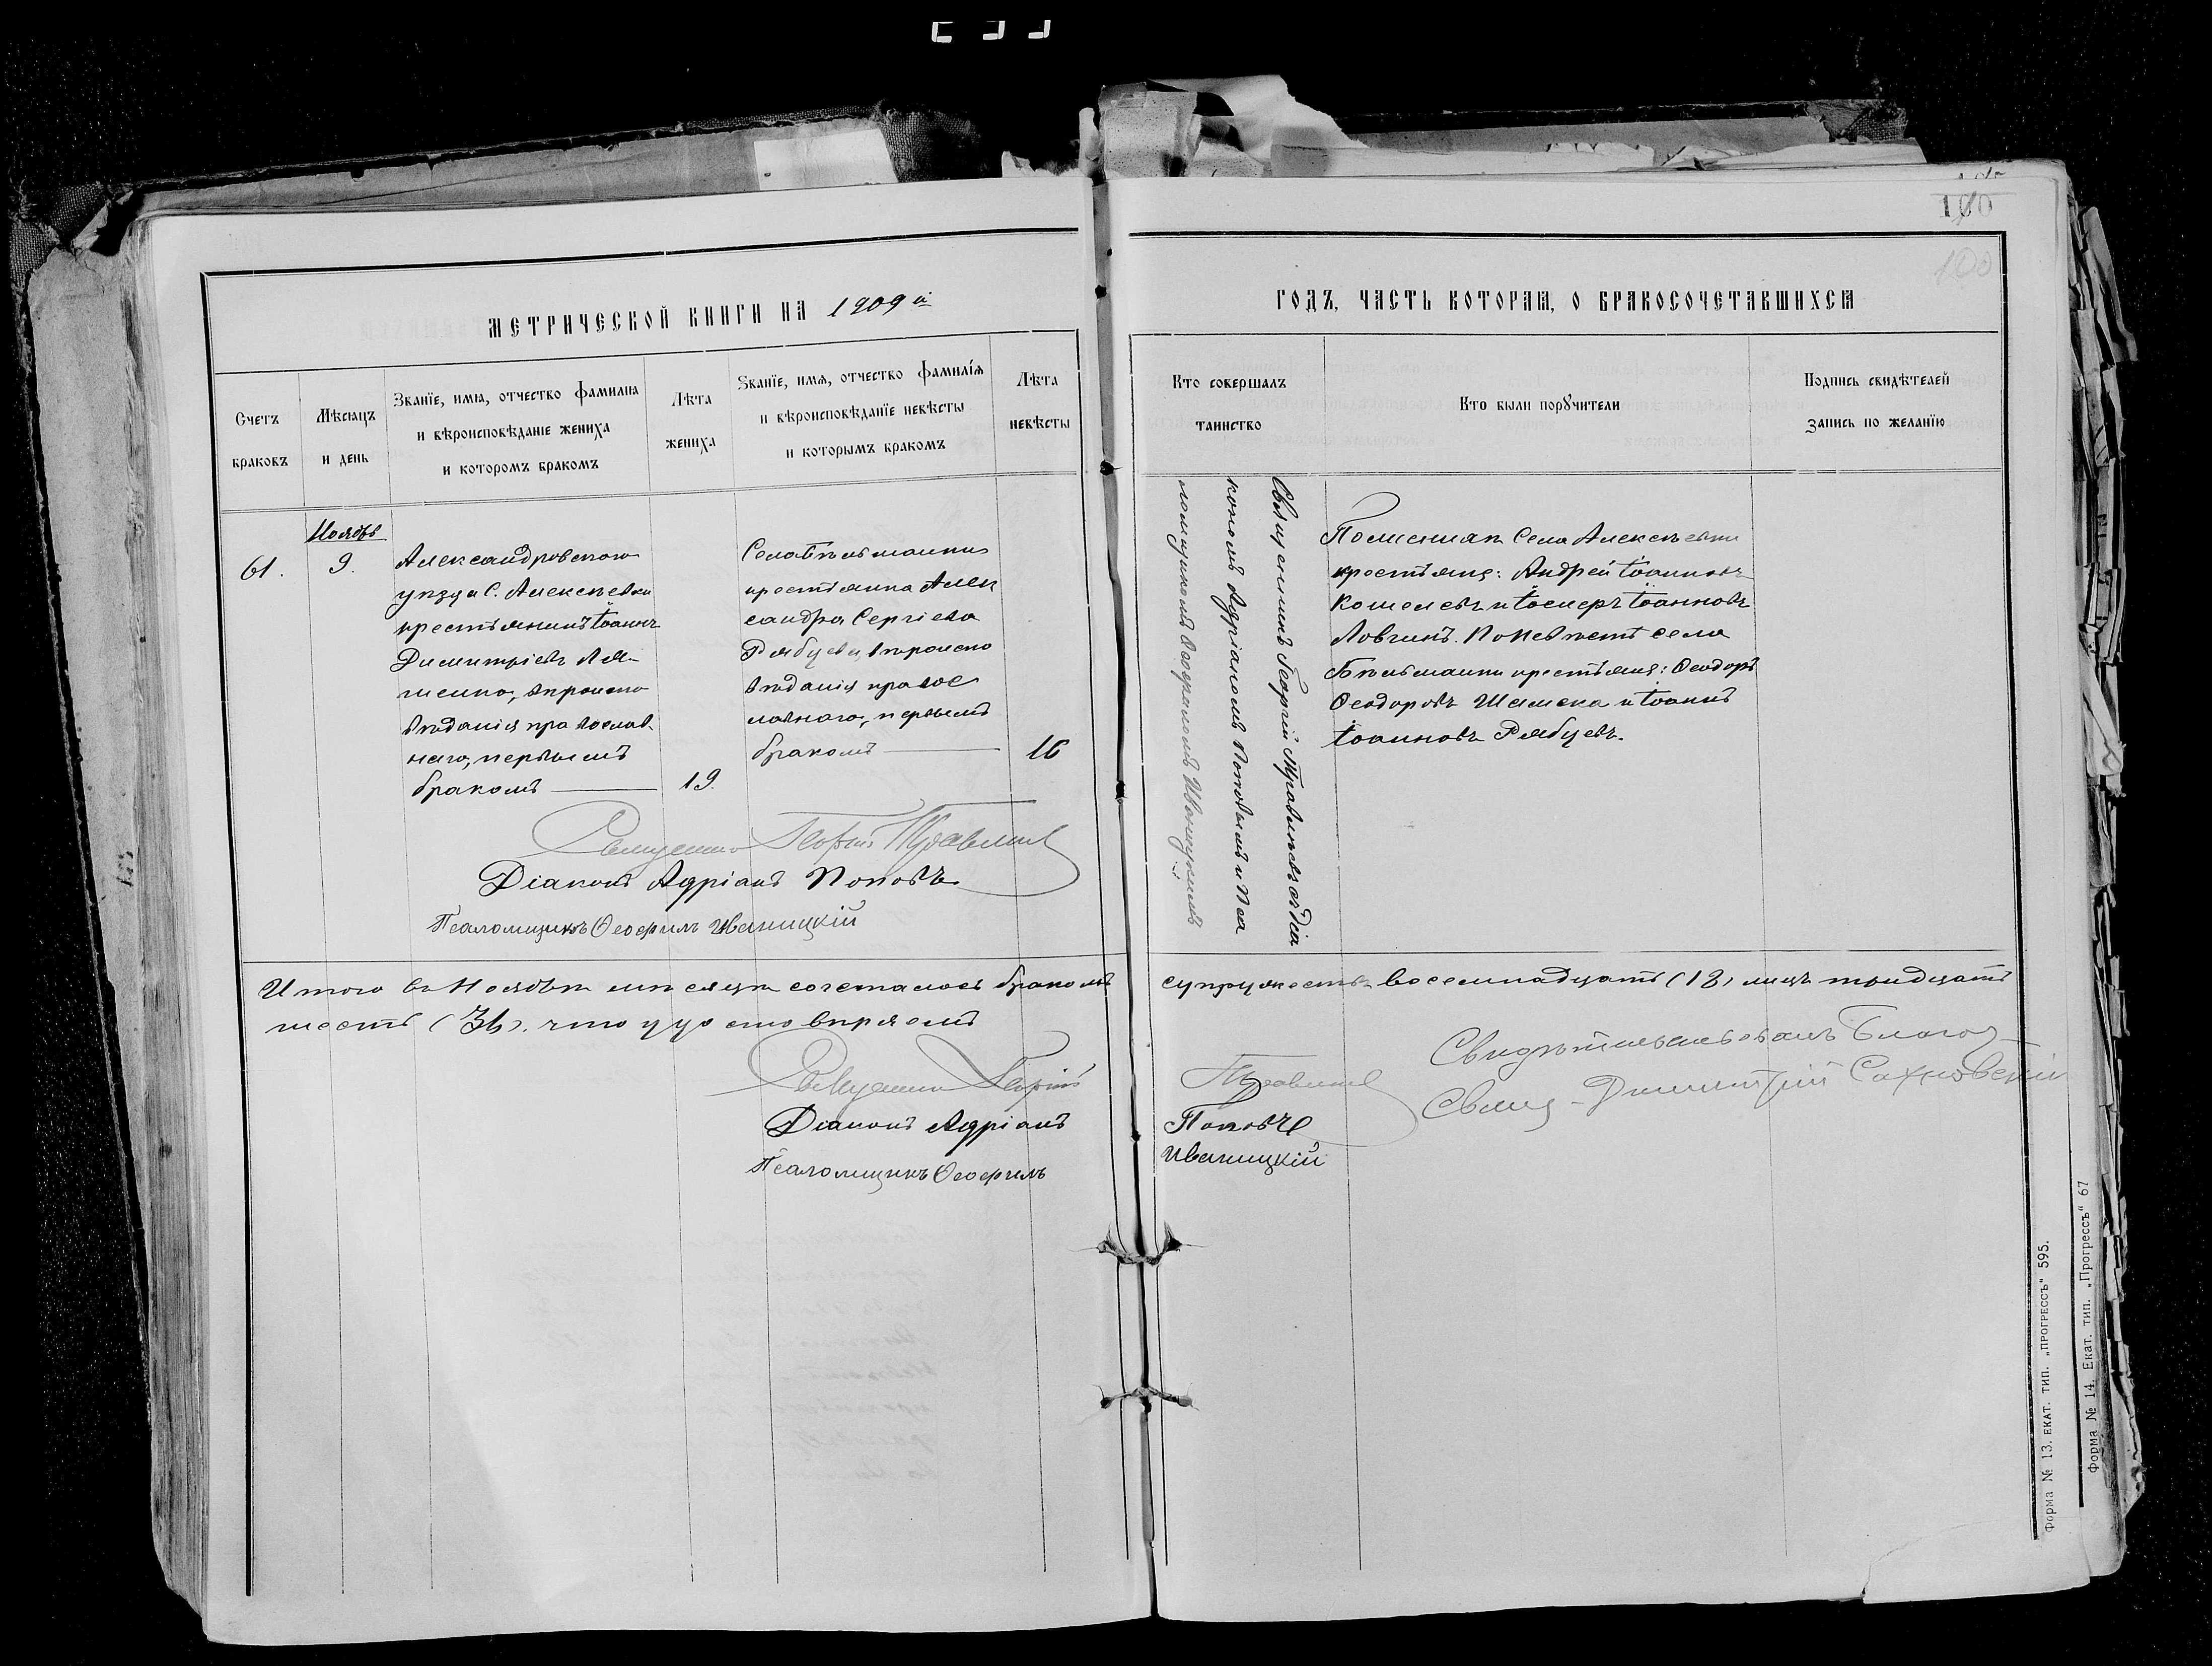 100
100
МЕТРИЧЕСКОЙ КНИГИ НА 1909й
ГОДЪ, ЧАСТЬ КОТОРАЯ, О БРАКОСОЧЕТАВШИХСЯ
Счетъ
браковъ
Мѣсяцъ
и день
Званїе, имя, отчество фамилна
и вѣроисповѣданіе жениха
и которомъ бракомъ
Лѣта
жениха
Званїе, имя, отчество фамилїя
и вѣроисповѣданїе невѣсты
и которымъ бракомъ
Лѣта
невѣсты
Кто совершалъ
таинство
Кто были порꙋчители
Подпись свидѣтелей
запись по желанїю
61.
Ноябрь
9.
Александровскаго
уѣзда с. Алексѣевки
крестьянинъ Іоаннъ
Димитріевъ
вѣроиспо
вѣданія православ
наго, первымъ
бракомъ
19.
Села Бѣльманки
крестьянина Алек
сандра Сергіева
Рябцева, вѣроиспо
вѣданія правос
лавнаго, первымъ
бракомъ
16
Священникъ Георгій Травлѣевъ съ Діа
кономъ Адріаномъ Поповымъ и Пса
ломщикомъ Ѳеофиломъ Иваницкимъ
По женихѣ Села Алексѣевки
крестьяне: Андрей Іоанновъ
Кошелевъ и Іосифъ Іоанновъ
Ловчинъ. По невѣстѣ села
Бѣльманки крестьяне: Ѳеодоръ
Ѳеодоровъ Шамека и Іоаннъ
Іоанновъ Рябцевъ.
Священникъ Георгій
Діаконъ Адріанъ Поповъ
Псаломщикъ Ѳеофилъ Иваницкій
Итого въ Ноябрѣ мѣсяцѣ сочеталось бракомъ супружествъ восемнадцать (18) лицъ тридцать
шесть (36). что удостовѣряемъ
Священникъ Георгій
Діаконъ Адріанъ Поповъ
Псаломщикъ Ѳеофилъ Иваницкій
Свидѣтельствовалъ Благоч.
Свящ. Димитрій Сахновскій
Форма № 13. ЕКАТ. ТИП. „ПРОГРЕССЪ" 595.
Форма № 14. Екат. тип. „Прогрессъ" 67